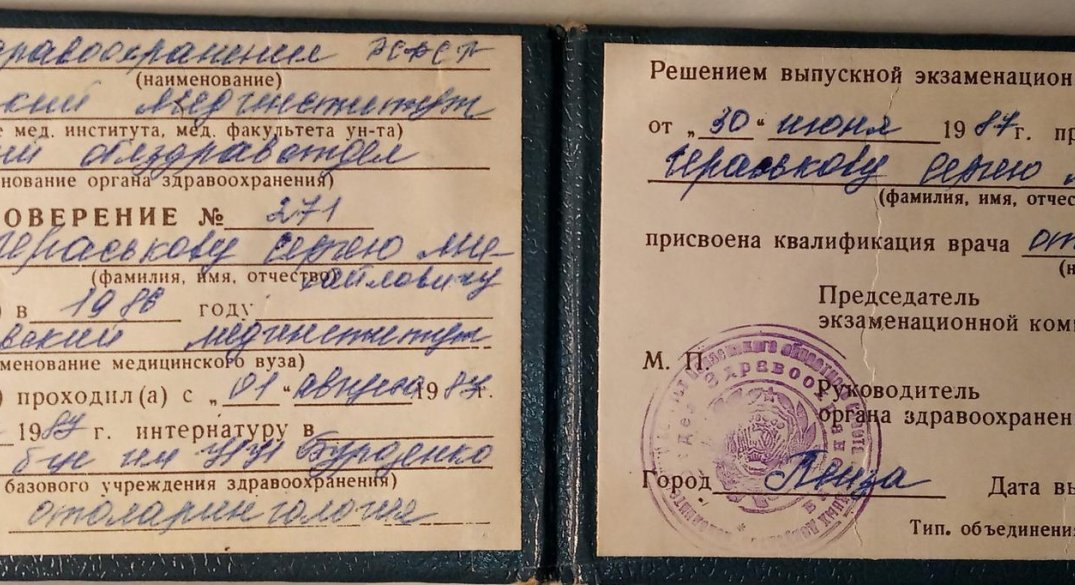 дравоохранения РСФСР
(наименование)
ский мединститут
е мед. института, мед. факультета ун-та)
ий облздравотдел
нование органа здравоохранения)
ОВЕРЕНИЕ № 271
Гераськову Сергею Ми-
(фамилия, имя, отчество)
хайловичу
) в 1986 году
вский мединститут
менование медицинского вуза)
) проходил(а) с „01“ августа 19
19 г. интернатуру в
б-це им Н Н Бурденко
базового учреждения здравоохранения)
отоларингология
Решением выпускной экзаменацион
от „30“ июня 1987 г. пр
Гераськову Сергею М
(фамилия, имя, отчес
присвоена квалификация врача от
(н
Председатель
экзаменационной коми
М. П.
Руководитель
органа здравоохранен
Город Пенза Дата вы
Тип. объединения